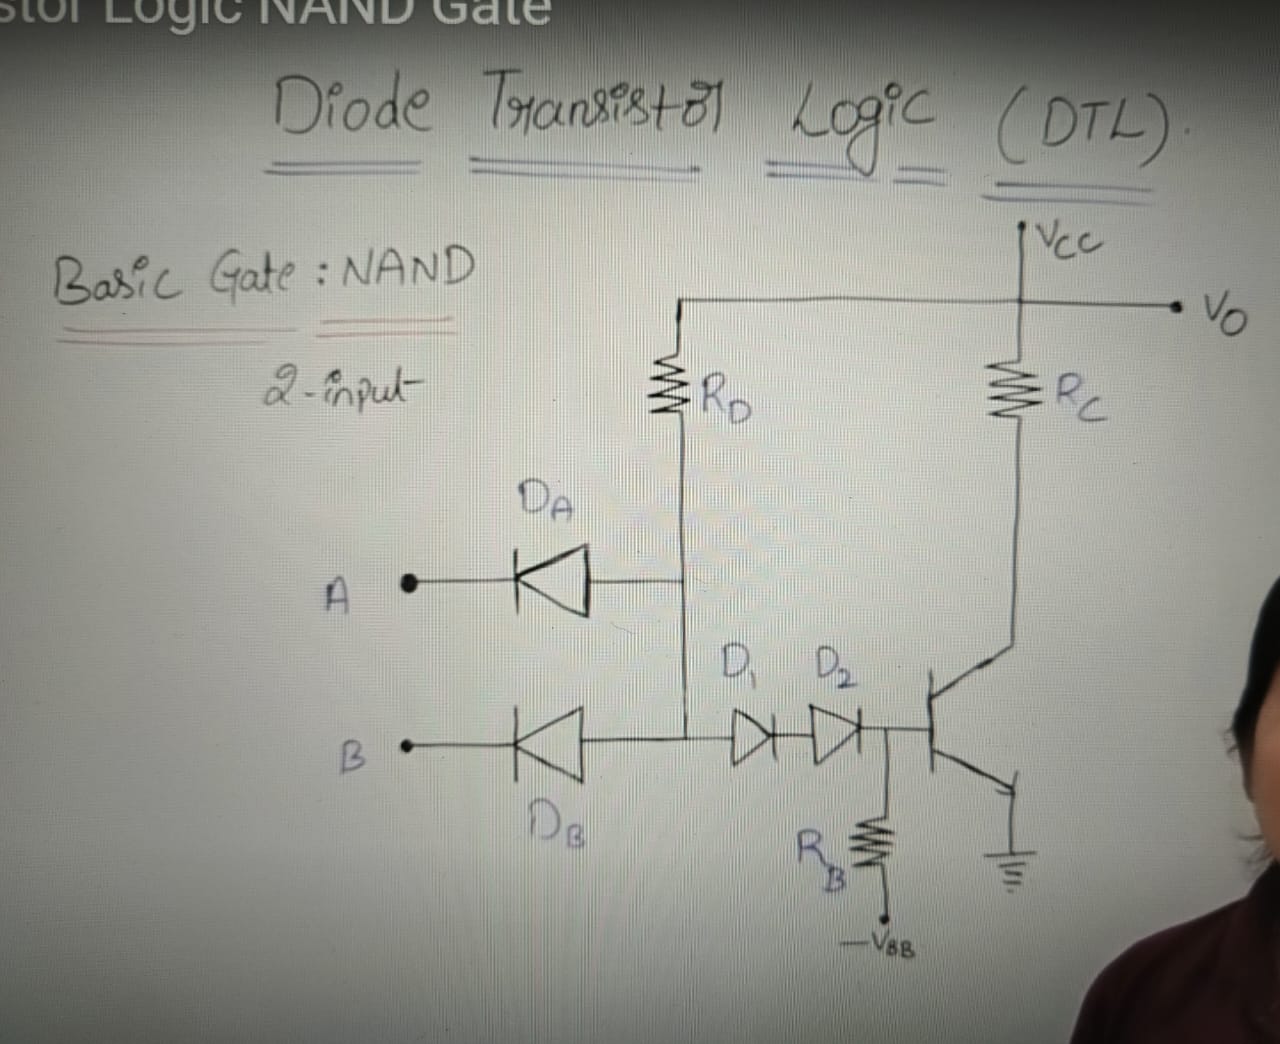 Logic NAND Gate
Diode Transistor Logic (DTL).
VCC
Basic Gate : NAND
VO
2-input
RD
RC
DA
A
D1 D2
B
DB
RB
-VBB